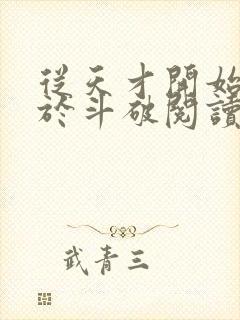 從天才開始
於斗破閱讀
武青三